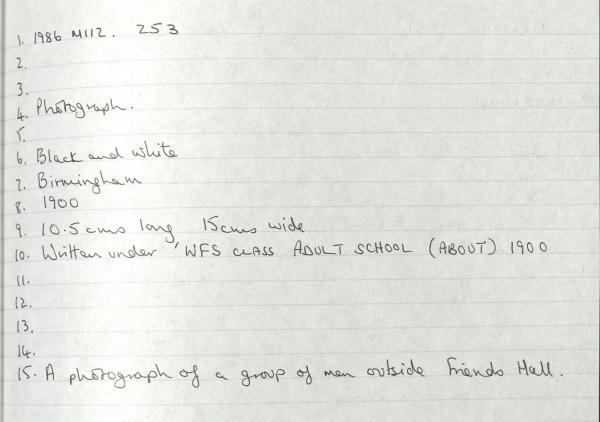 1. 1986 M112. 253
2.
3.
4. Photograph.
5.
6. Black and white
7. Birmingham
8. 1900
9. 10.5 cms long 15cms wide
10. Written under 'WFS CLASS ADULT SCHOOL (ABOUT) 1900
11.
12.
13.
14.
15. A photograph of a group of men outside Friends Hall.